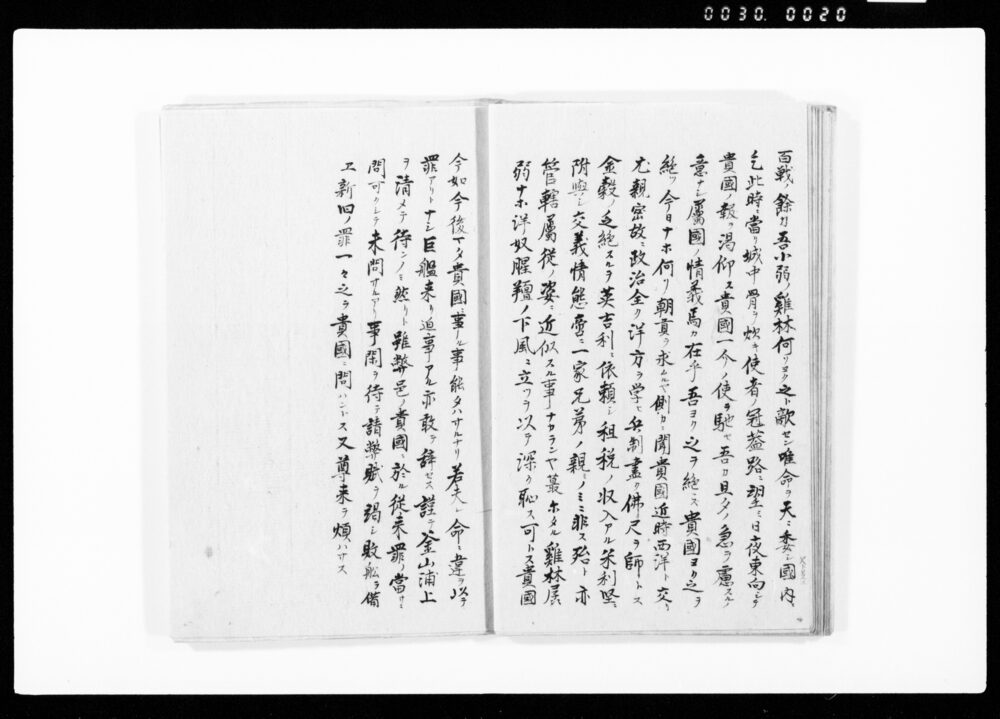 0030. 0020
百戦ノ餘力吾小弱ノ雞林何リヨク之ト敵セン唯命ヲ天ニ委シ國内ニ
乞此時ニ當リ城中骨ヲ炊キ使者ノ冠蓋路ニ望ミ日夜東向シテ
貴國ノ報ヲ渇仰ス貴國一介ノ使ヲ馳セ吾カ旦夕ノ急ヲ慮スルノ
意ナシ屬國ノ情義焉カ在乎吾ヨク之ヲ絶ニス貴國ヨク之ヲ
絶ツ今日ナホ何リ朝貢ヲ求ムルヤ側カニ聞貴國近時西洋ト交ニ
尤親密故ニ政治全ク洋方ヲ学ヒ兵制盡ク佛尺ヲ師トス
金穀ノ乏絶スルヲ英吉利ニ依頼シ租税ノ収入アル米利堅ニ
附與シ交義情態啻ニ一家兄弟ノ親ミノミニ非ス殆ト亦
管轄屬従ノ姿ニ近似スル事ナカランヤ蕞ホタル雞林孱
弱ナホ洋奴腥羶ノ下風ニ立ツヲ以テ深ク恥ス可トス貴國
今如今後マタ貴國ニ事ル事能タハサルナリ若夫レ命ニ違ヲ以テ
罪アリトナシ巨艦来リ迫事アル亦敢テ辞セス謹テ釜山浦上
ヲ清メテ待ンノミ然リト雖弊邑ノ貴國ニ於ル従来罪ノ當ニ
問可クシテ未問サルアリ事閑ヲ待テ請弊賦ヲ竭シ敗舩ヲ備
エ新旧ノ罪一々之ヲ貴國ニ問ハントス又尊来ヲ煩ハサス